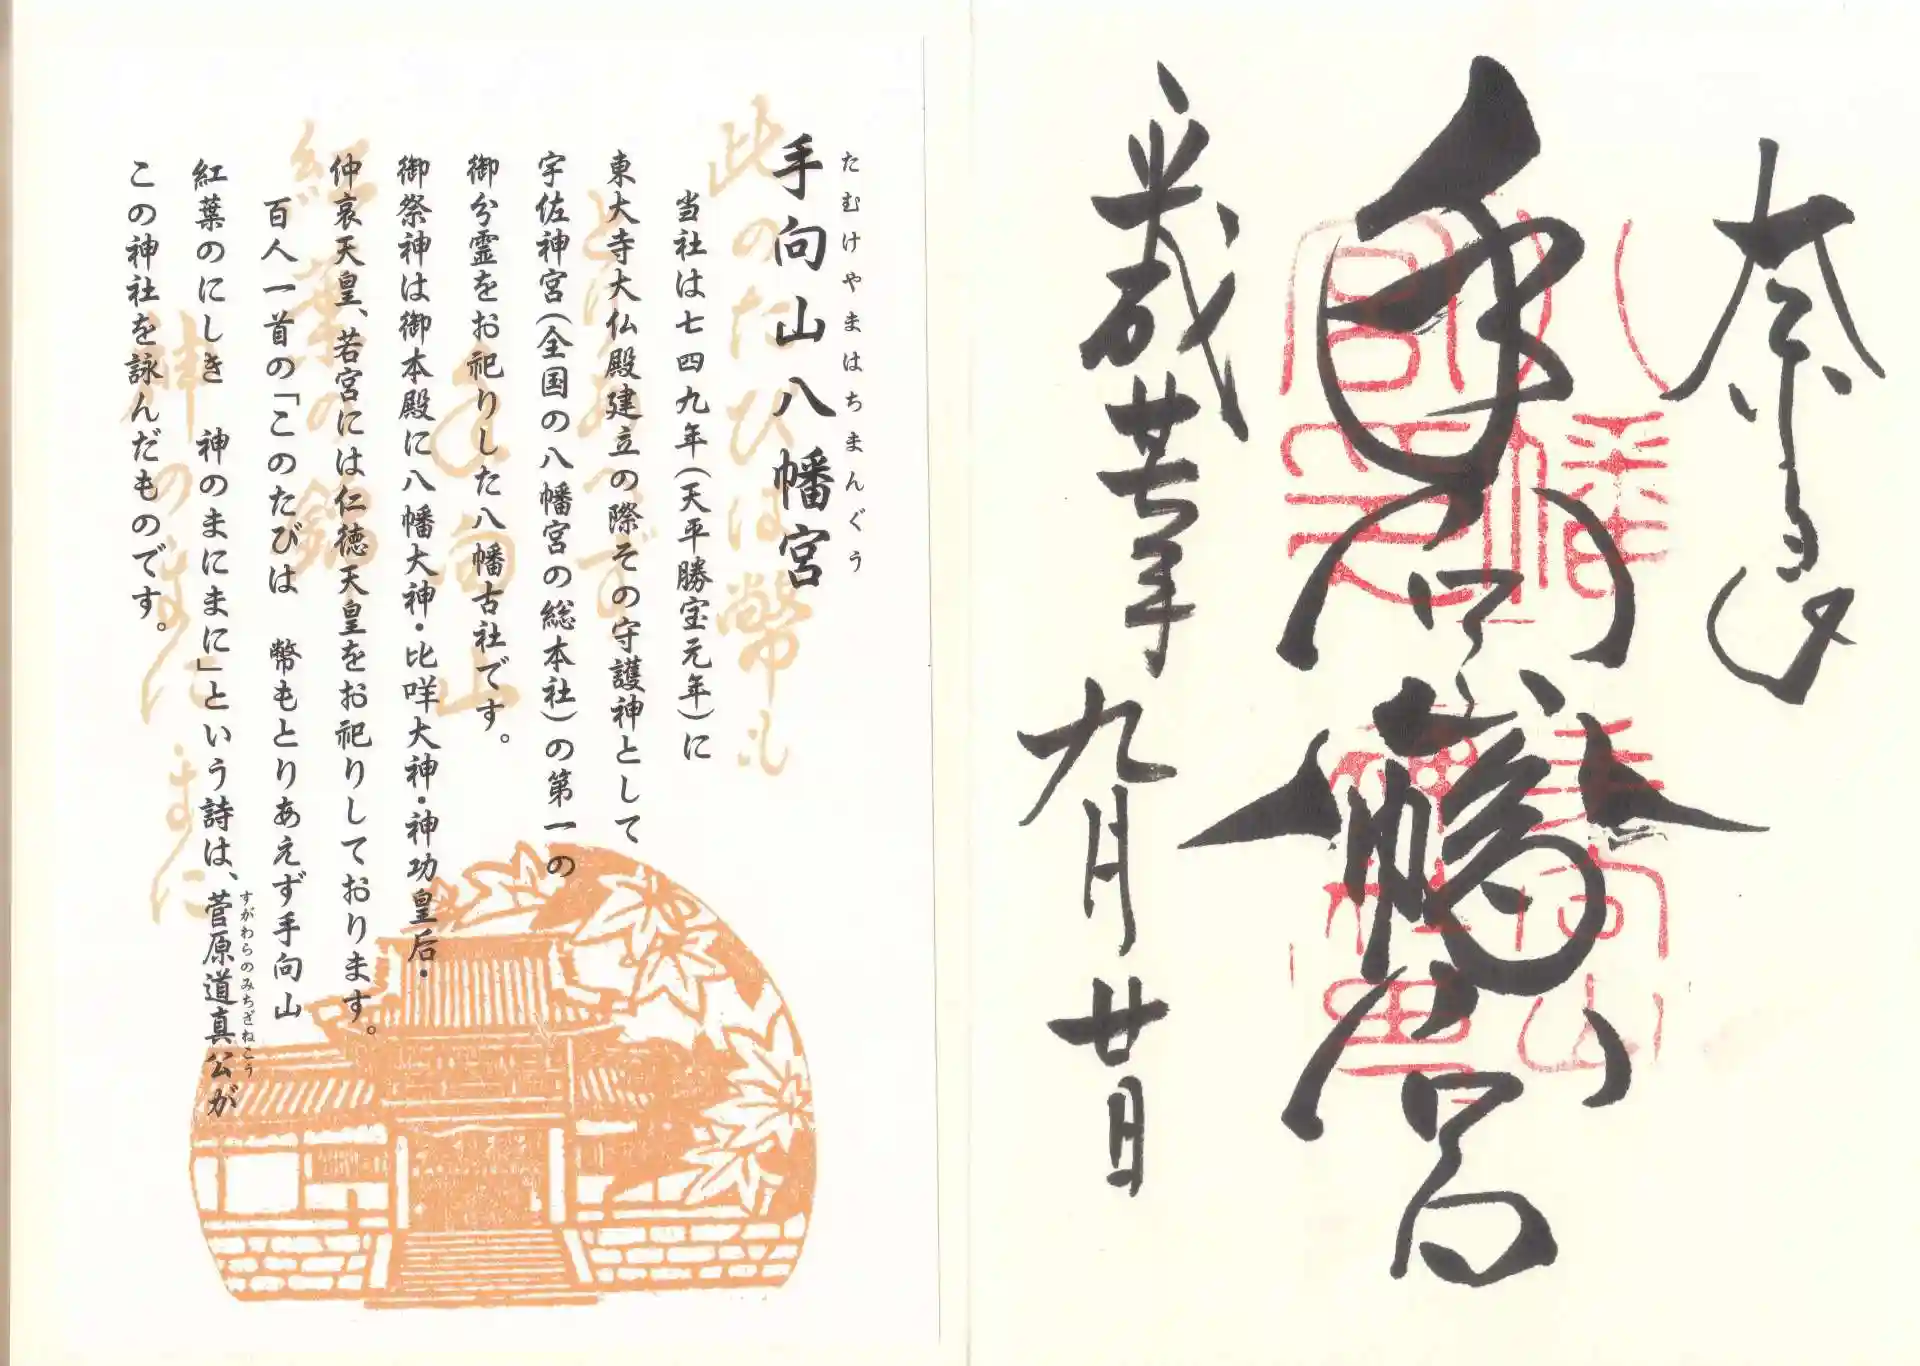 奈良
手向八幡宮
平成廿七年
九月廿日
たむけやまはちまんぐう
手向山八幡宮
当社は七四九年(天平勝宝元年)に
東大寺大仏殿建立の際その守護神として
宇佐神宮(全国の八幡宮の総本社)の第一の
御分霊をお祀りした八幡古社です。
御祭神は御本殿に八幡大神・比咩大神・神功皇后・
仲哀天皇、若宮には仁徳天皇をお祀りしております。
百人一首の「このたびは 幣もとりあえず手向山
紅葉のにしき 神のまにまに」という詩は、菅原道真公が
すがわらのみちざねこう
この神社を詠んだものです。
此のたびは幣も
とりあへず
手向山
紅葉の錦
神のまにまに